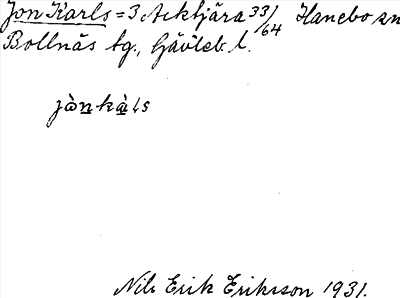 Jon Karls = 3 Acktjära 33/64 Hanebo sn
Bollnäs tg., Gävleb. l.
jònkàls
Nils Erik Eriksson 1931.